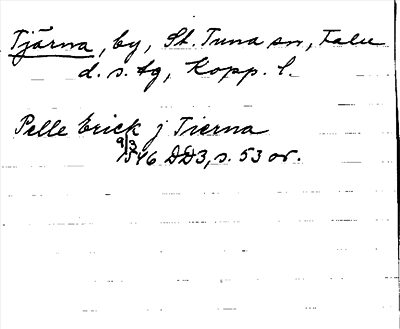 Tjärna, by, St. Tuna sn, Falu
d. s. tg, Kopp. l.
Pelle Erick j Tierna
9/3 1546 DD3, s. 53 or.